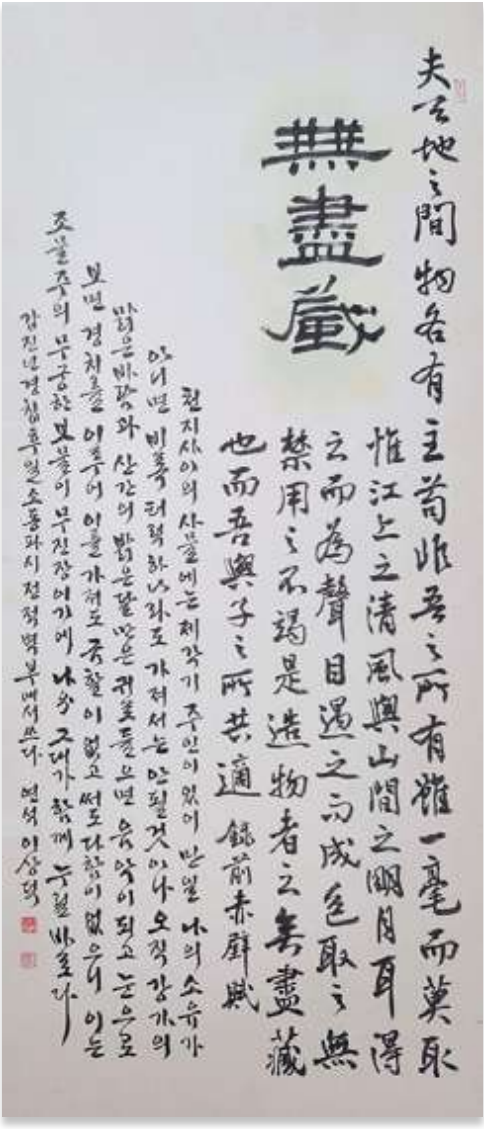 夫天地之間物各有主苟非吾之所有雖一毫而莫取
無盡藏
惟江上之清風與山間之明月耳得
之而為聲目遇之而成色取之無
禁用之不竭是造物者之無盡藏
也而吾與子之所共適 錄前赤壁賦
천지사이의 사물에는 제각기 주인이 있어 만일 나의 소유가
아니면 비록 터럭 하나라도 가져서는 안될것이나 오직 강가의
맑은바람과 산간의 밝은달만은 귀로 들으면 음악이 되고 눈으로
보면 경치를 이루어 이를 가져도 금할이 없고 써도 다함이 없으니 이는
조물주의 무궁한 보물이 무진장이기에 나와 그대가 함께 누릴 바로다
갑진년경칩후일소동파시전적벽부에서쓰다 연석 이상덕